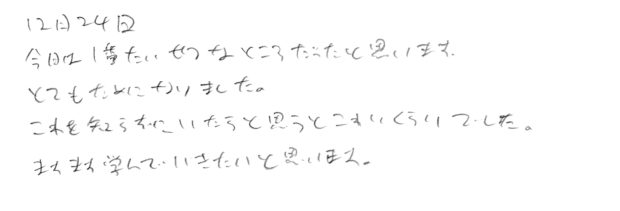 12月24日
今日は1番たいせつなところだったと思います。
とてもためになりました。
これを知らずにいたらと思うとこわいくらいでした。
ますます学んでいきたいと思います。